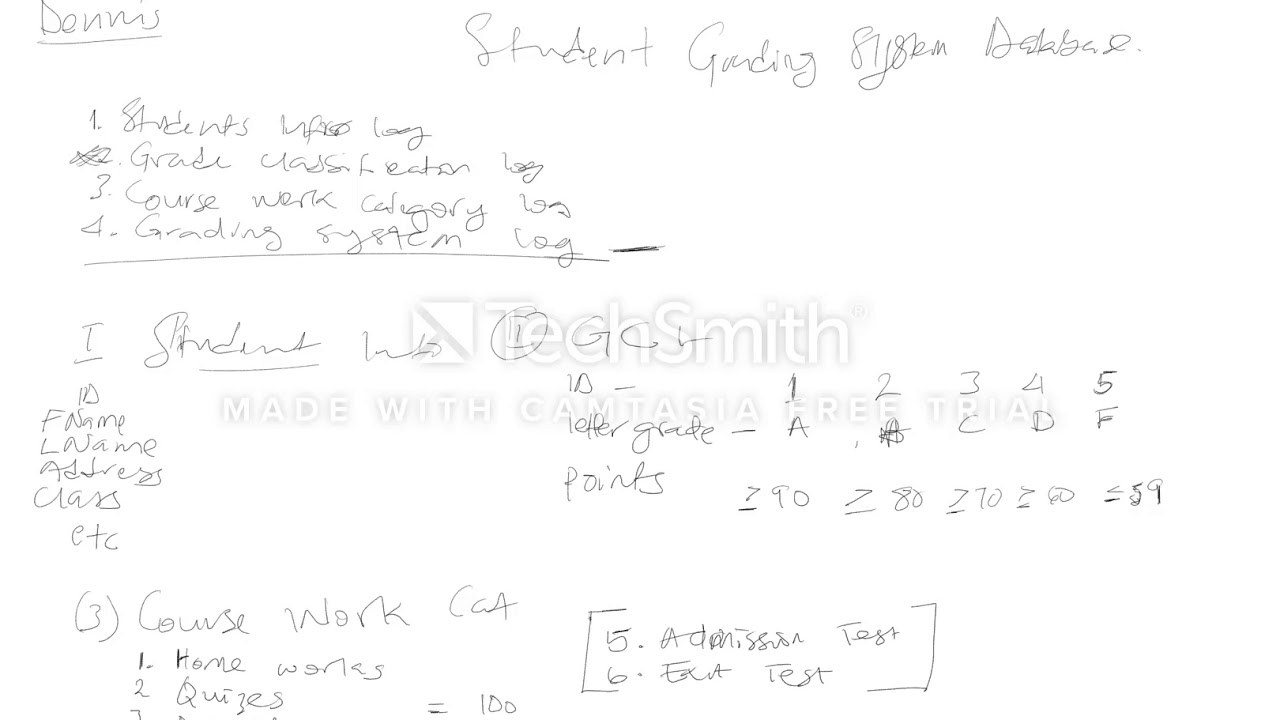 Dennis
Student Grading System Database.
1. Students Info log
2. Grade classification log
3. Course work category log
4. Grading system log
I Student Info
II GCL
ID
FName
LName
Address
Class
etc
ID – 1 2 3 4 5
letter grade – A C D F
points ≥ 90 ≥ 80 ≥ 70 ≥ 60 ≤ 59
TechSmith®
MADE WITH CAMTASIA FREE TRIAL
(3) Course Work Cat
1. Home works
2 Quizes
= 100
5. Admission Test
6. Exit Test